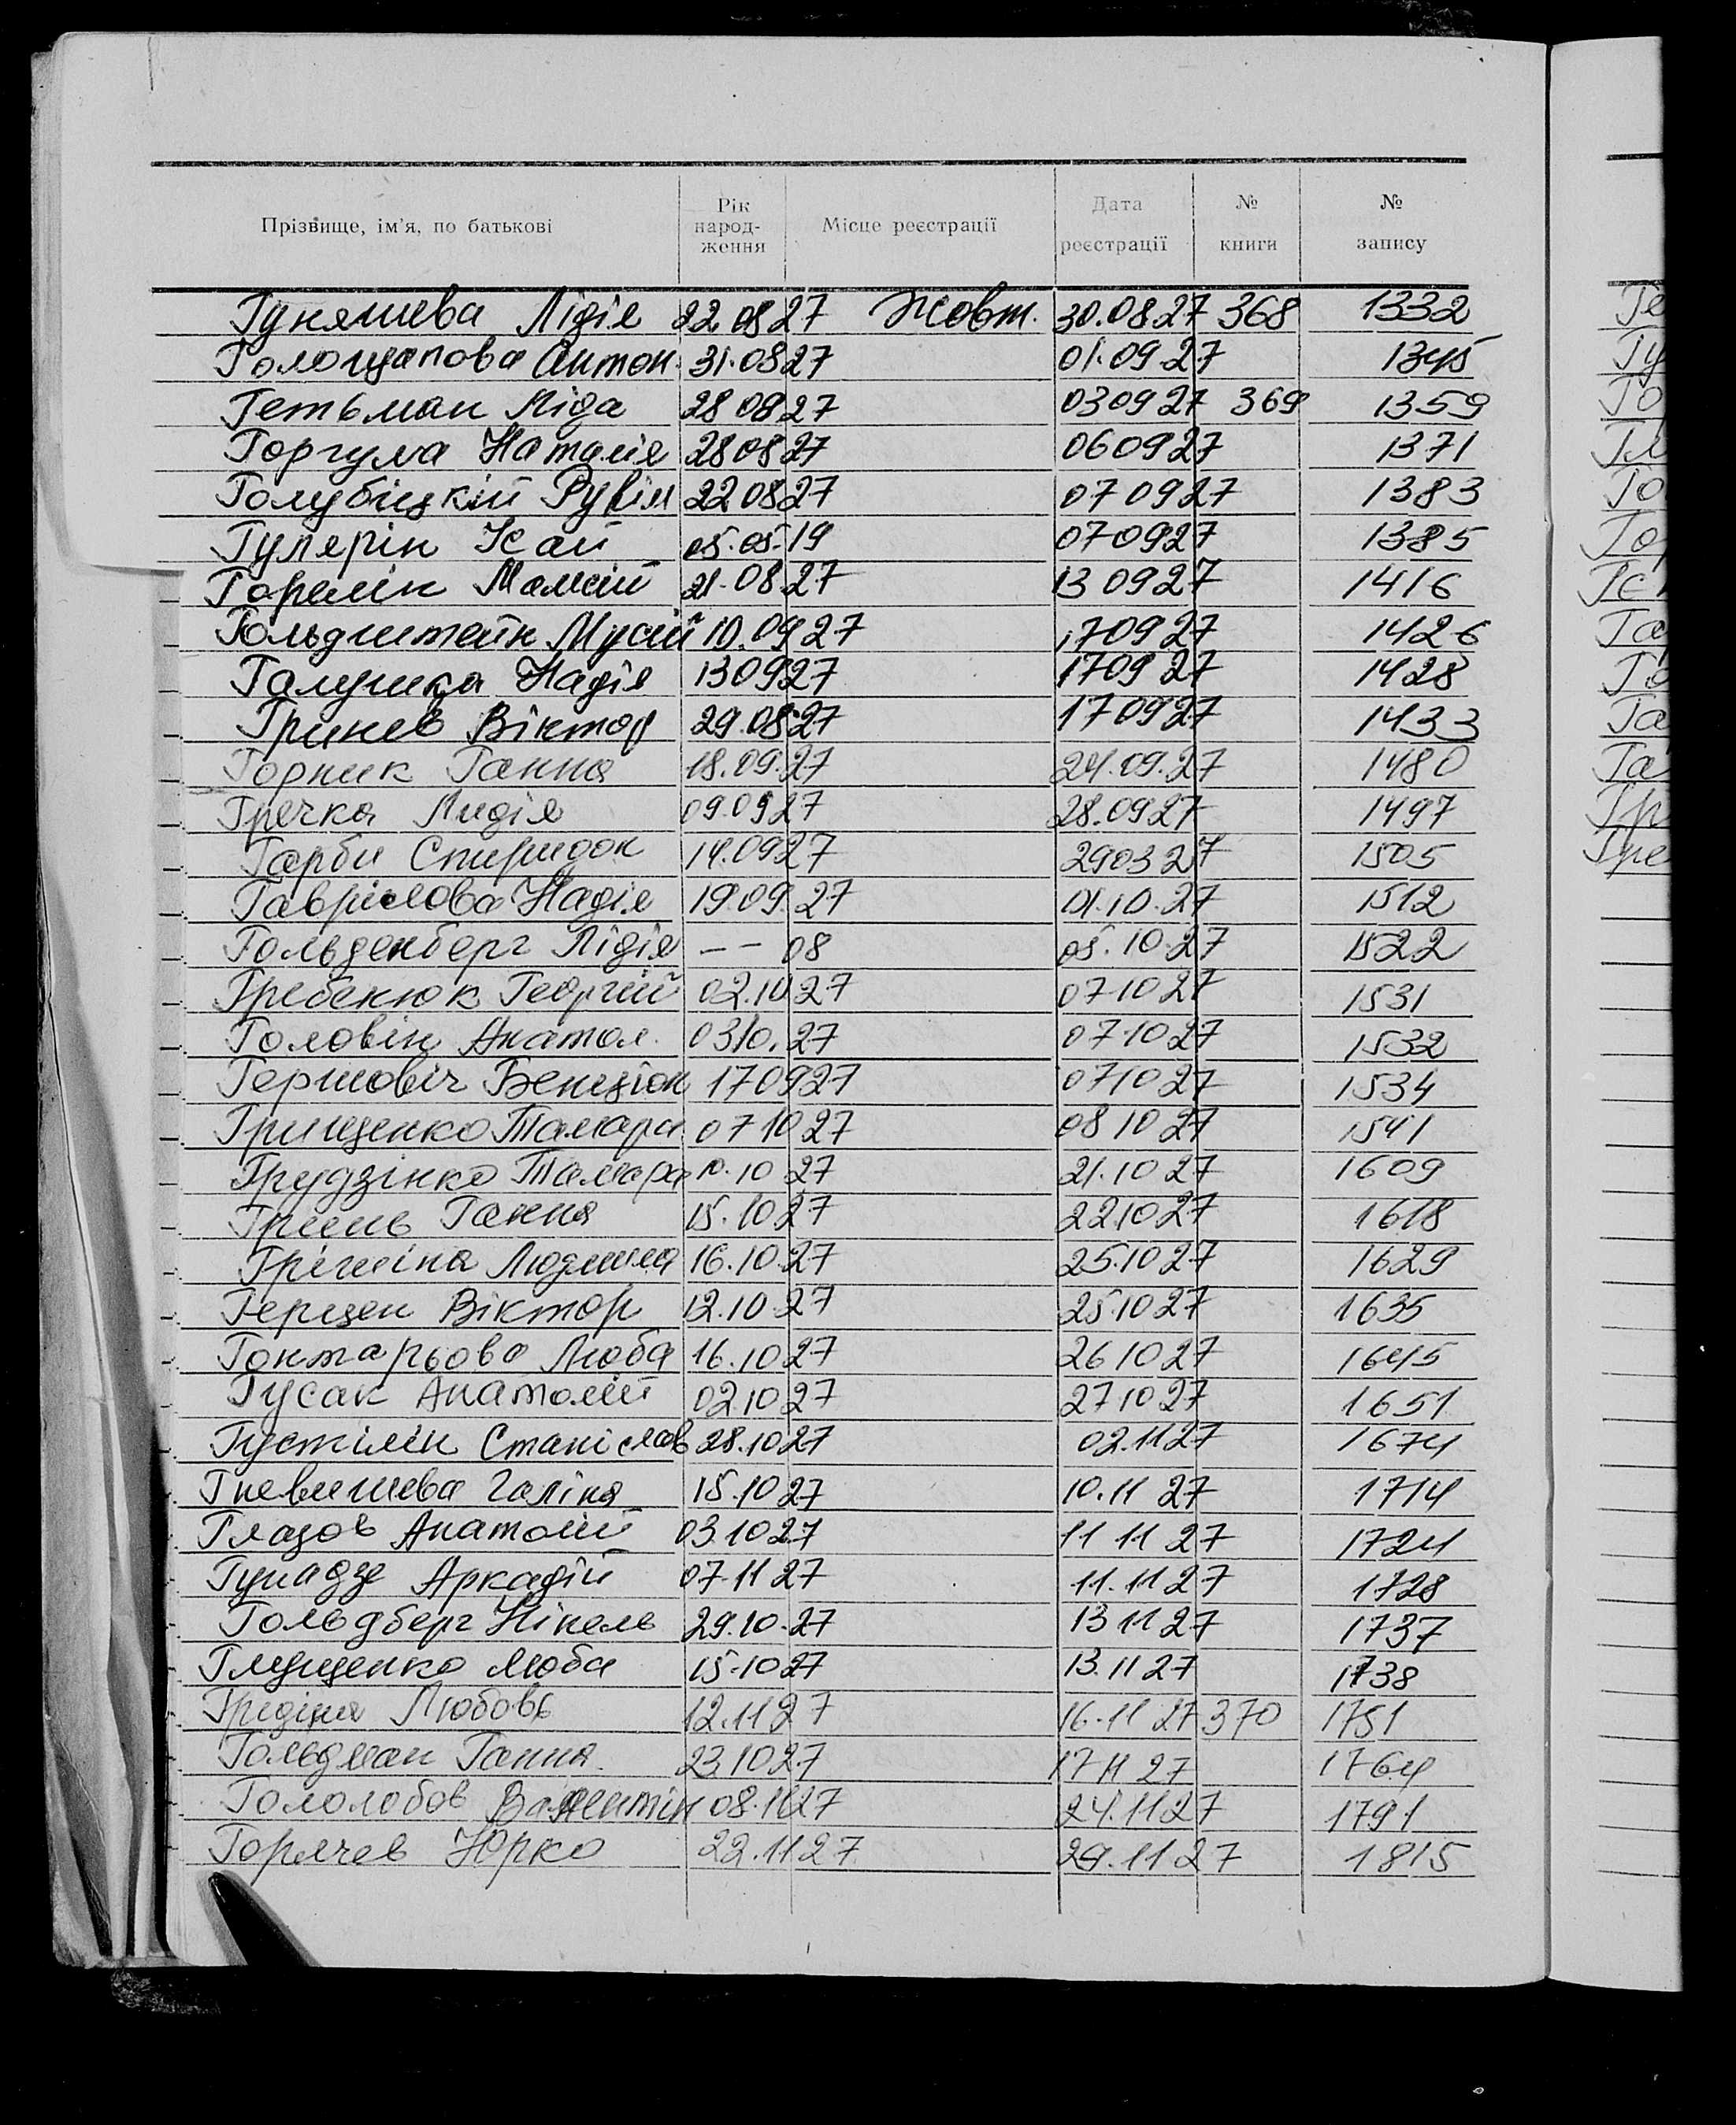 Прізвище, ім'я, по батькові Рік народження Місце реєстрації Дата реєстрації № книги № запису
Гуняшева Лідія 22 08 27 Жовт. 30.08.27 368 1332
Голощапова Антон. 31.08 27 01.09 27 1345
Гетьман Ліда 28 08 27 03 09 27 369 1359
Горгула Наталія 28 08 27 06 09 27 1371
Голубіцкій Рувім 22 08 27 07 09 27 1383
Гулярін Ісай 05.05.19 07 09 27 1385
Горелік 21.08 27 13 09 27 1416
Гольдштейн Мусій 10.09 27 17 09 27 1426
Галушка Надія 13 09 27 17 09 27 1428
Гринев Віктор 29.08 27 17 09 27 1433
Горник Ганна 18.09.27 24.09.27 1480
Гречка Лидія 09.09 27 28.09 27 1497
Гарби Спиридон 14.09 27 29 03 27 1505
Гаврілова Надія 19.09.27 01.10.27 1512
Гольденберг Лідія — — 08 05.10.27 1522
Гребенюк Георгій 02.10 27 07 10 27 1531
Головін Анатол. 03 10.27 07 10 27 1532
Гершовіч Бенціон 17 09 27 07 10 27 1534
Грищенко Тамара 07 10 27 08 10 27 1541
Грудзінко Тамара 10.10 27 21.10 27 1609
Гринь Ганна 15.10 27 22 10 27 1618
Грішіна Людмила 16.10.27 25.10 27 1629
Герцен Віктор 12.10.27 25 10 27 1635
Гонтарьова Люба 16.10 27 26 10 27 1645
Гусак Анатолій 02 10 27 27 10 27 1651
Густілін Станіслав 28.10 27 02.11 27 1674
Гневишева Галіна 15.10 27 10.11 27 1714
Глазов Анатолій 03.10 27 11 11 27 1724
Гунадзе Аркадій 07.11 27 11.11 27 1728
Гольдберг Нінель 29.10.27 13 11 27 1737
Глущенко Люба 15.10 27 13.11 27 1738
Гредіна Любовь 12.11 27 16.11 27 370 1751
Гольдман Ганна 23.10 27 17 11 27 1764
Гололобов Валентін 08.11 27 24.11 27 1791
Горячев Юрко 22.11 27 29.11 27 1815